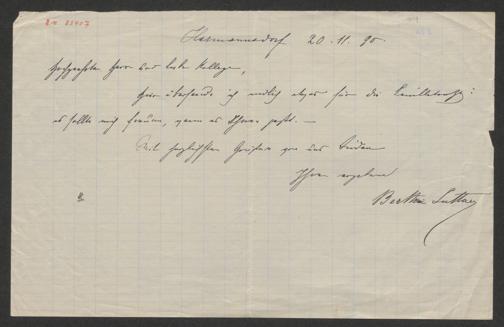 Harmannsdorf 20.11.90.
Hochgeehrter Herr und lieber Kollege,
Hier übersende ich endlich etwas für die
es sollte mich freuen, wenn es Ihnen paßt. —
Mit herzlichsten Grüßen von uns beiden
Ihre ergebene
Bertha Suttner